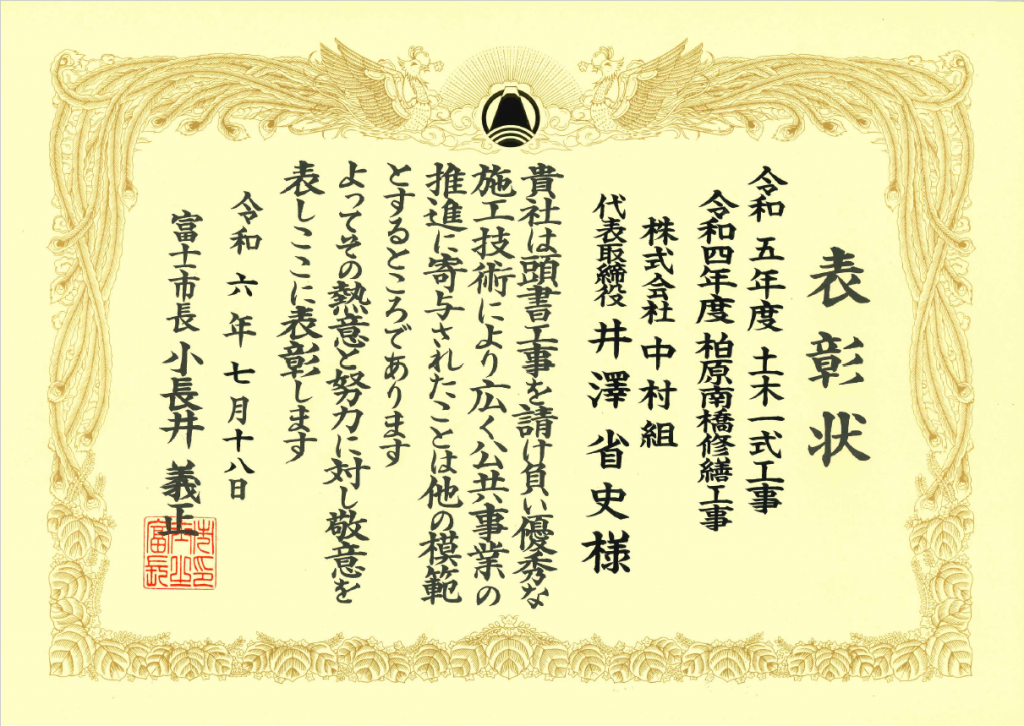 表彰状
令和五年度 土木一式工事
令和四年度 柏原南橋修繕工事
株式会社 中村組
代表取締役 井澤省史様
貴社は頭書工事を請け負い優秀な
施工技術により広く公共事業の
推進に寄与されたことは他の模範
とするところであります
よってその熱意と努力に対し敬意を
表しここに表彰します
令和六年七月十八日
富士市長 小長井義正
富士市長之印